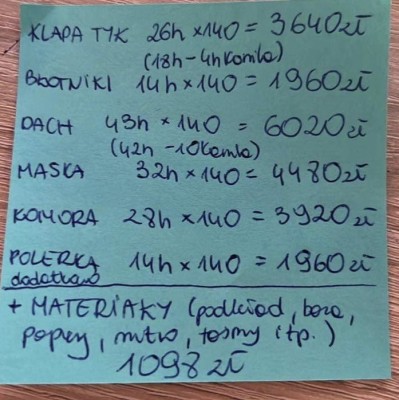 KLAPA TYK 26h × 140 = 3640zł
(18h - 4h Kamila)
BŁOTNIKI 14h × 140 = 1960zł
DACH 43h × 140 = 6020zł
(42h - 10 Kamila)
MASKA 32h × 140 = 4480zł
KOMORA 28h × 140 = 3920zł
POLERKA 14h × 140 = 1960zł
dodatkowo
+ MATERIAŁY (podkład, baza,
papiery, nitro, taśmy itp.)
1098zł